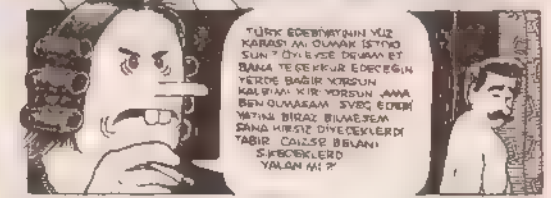 TÜRK EDEBİYATININ YÜZ
KARASI MI OLMAK İSTİYO
SUN? ÖYLEYSE DEVAM ET
BANA TEŞEKKÜR EDECEĞİN
YERDE BAĞIRIYORSUN
KALBİMİ KIRIYORSUN AMA
BEN OLMASAM İSVEÇ EDEBİ
YATINI BİRAZ BİLMESEM
SANA HIRSIZ DİYECEKLERDİ
TABİR CAİZSE BELANI
S.KECEKLERD
YALAN MI?